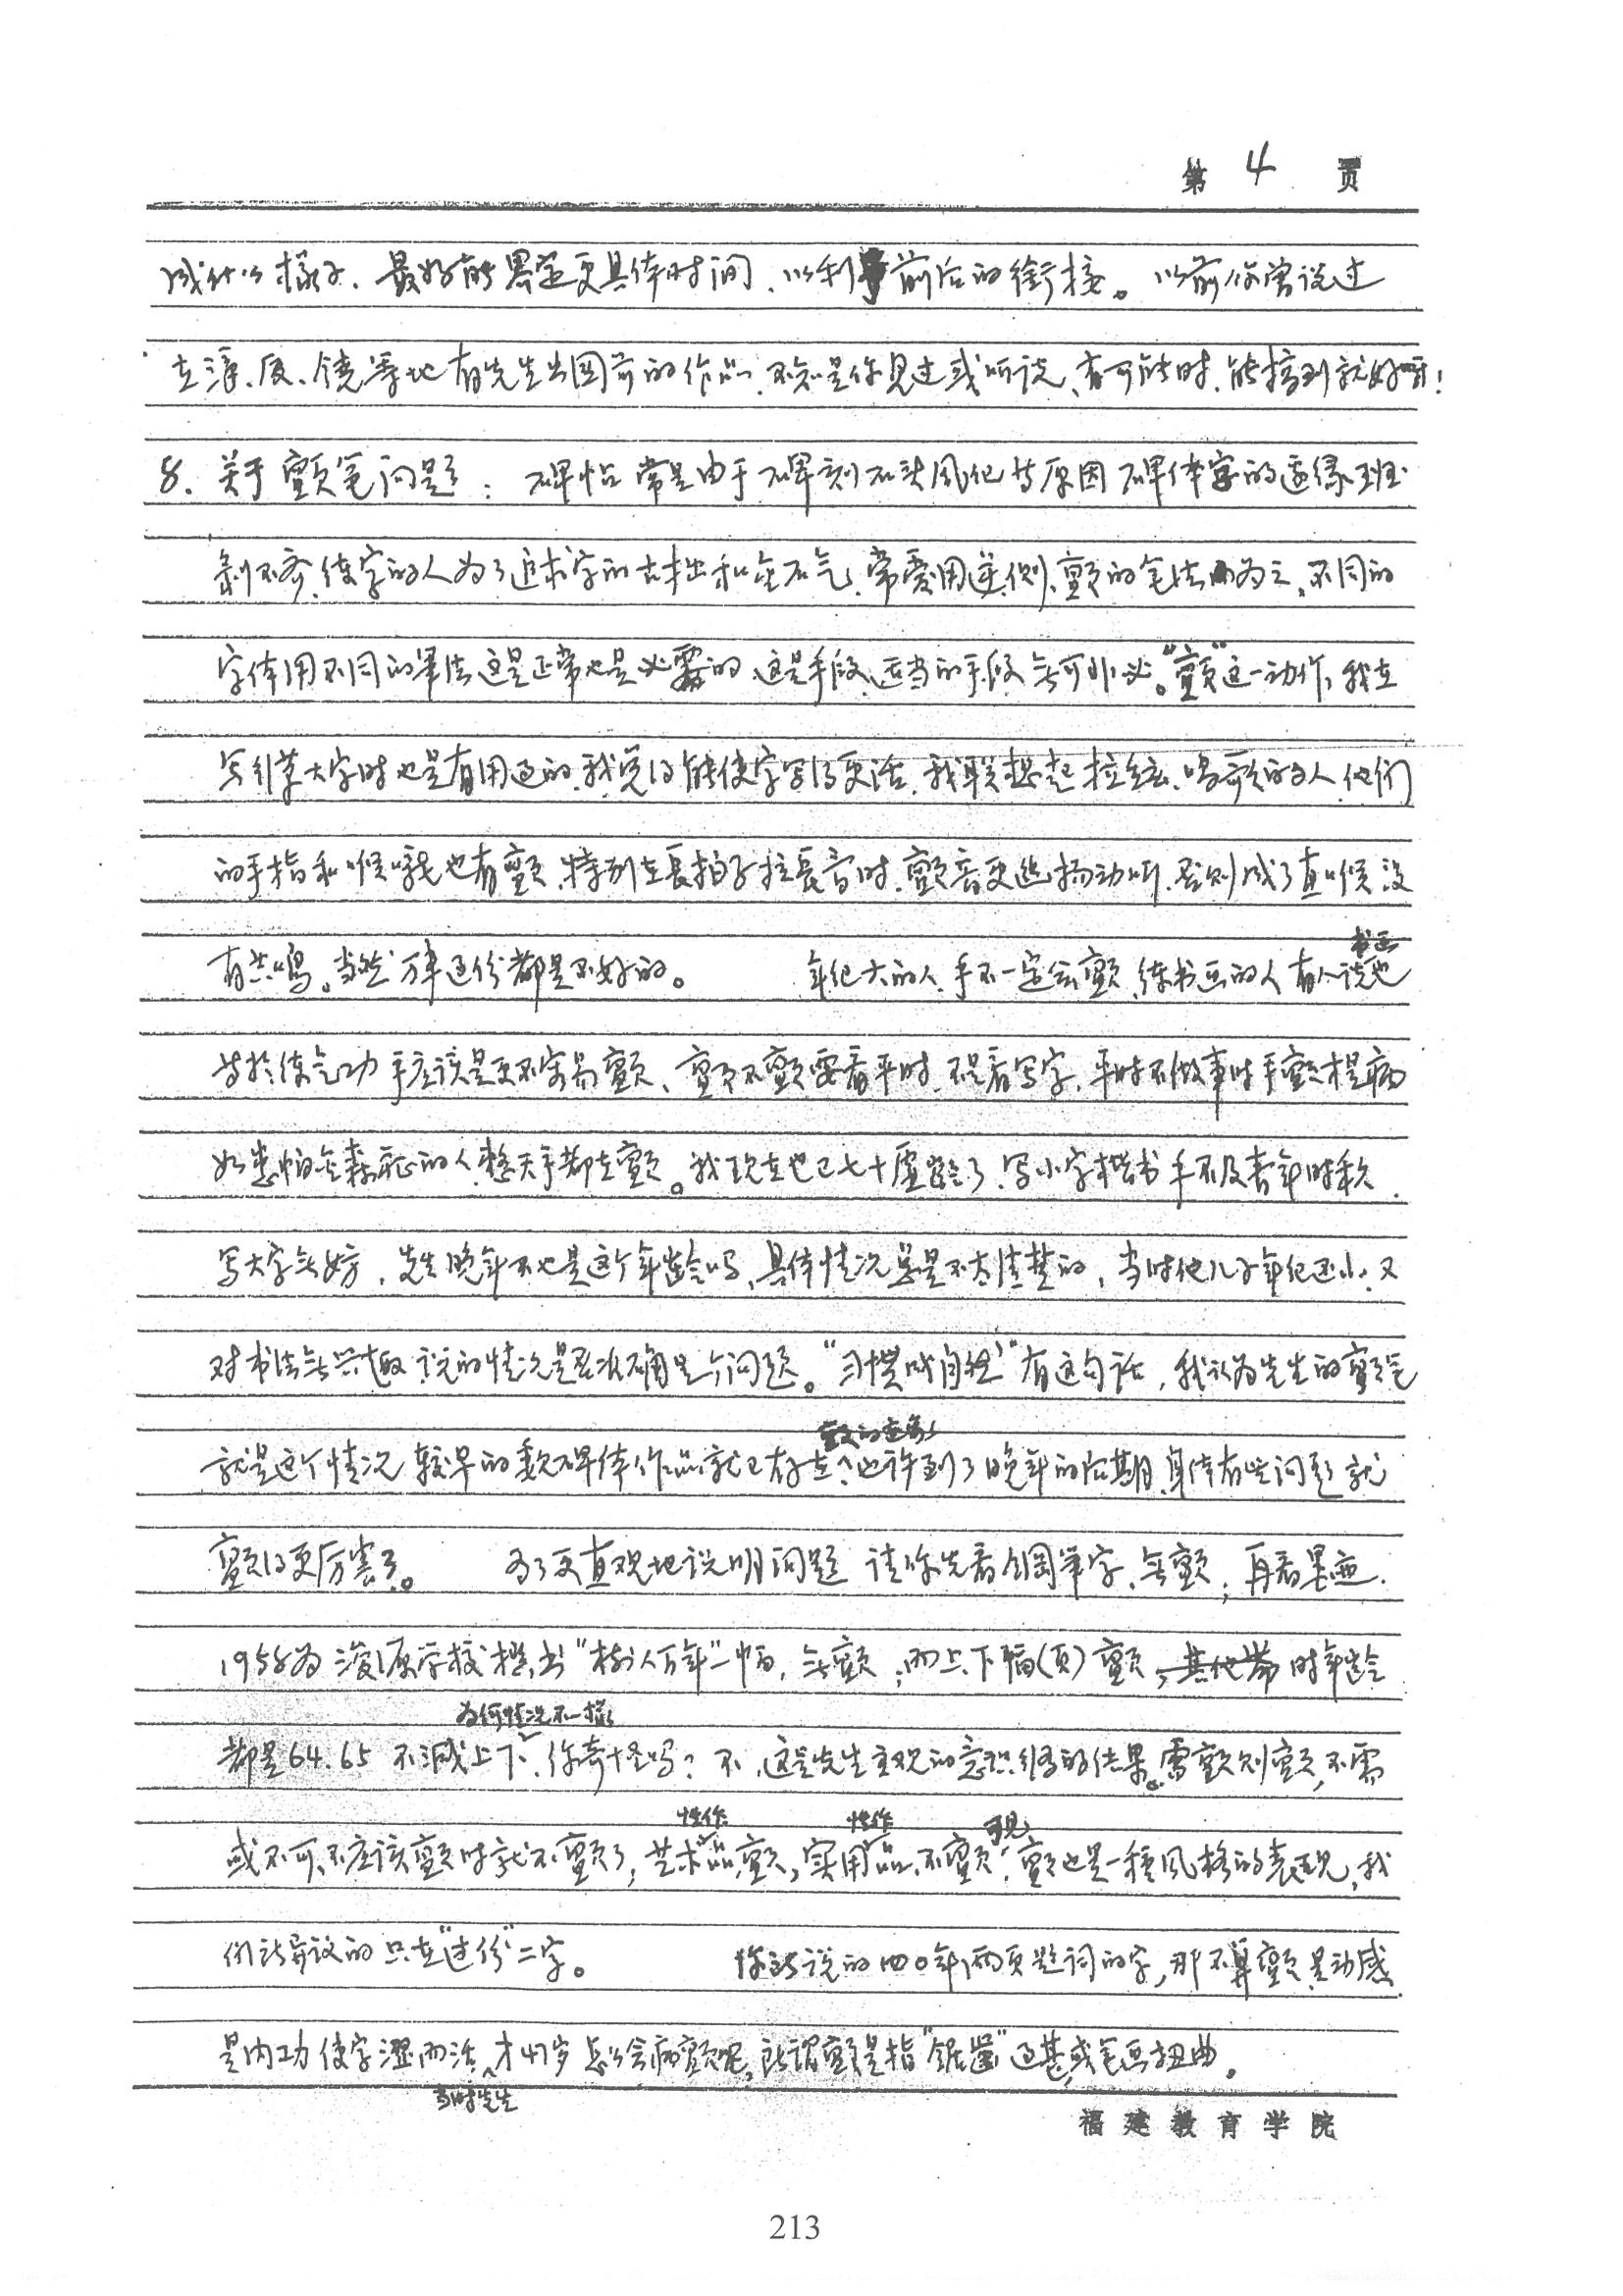 第 4 页
成什么样子、最好能界定更具体时间、以利于前后的衔接。以前你曾说过
在漳、厦、饶等地有先生出国前的作品、不知是你见过或听说、有可能时、能搞到就好啊!
8. 关于颤笔问题: 碑帖常是由于碑刻石头风化等原因碑体字的边缘斑
剥不齐、练字的人为了追求字的古拙和金石气、常要用逆、侧、颤的笔法为之。不同的
字体用不同的笔法这是正常也是必需的、这是手段、适当的手段、无可非议。“颤”这一动作、我在
写行草大字时也是有用过的、我觉得能使字写得更活、我联想起拉弦、唱歌的人、他们
的手指和喉咙也有颤、特别在长拍子拉长音时、颤音更悠扬动听、否则成了直喉没
有共鸣。当然万事过份都是不好的。 年纪大的人、手不一定会颤、练书画的人有人说书画也
等于练气功 手应该是更不容易颤、颤不颤要看平时、不是看写字、平时不做事时手颤才是病
如患帕金森症的人、整天手都在颤。我现在也已七十虚龄了、写小字楷书手不及青年时稳、
写大字无妨,先生晚年不也是这个年龄吗、具体情况总是不太清楚的,当时他儿子年纪还小、又
对书法无兴趣、说的情况是否准确是个问题。“习惯成自然”有这句话,我认为先生的颤笔
就是这个情况、较早的魏碑体作品就已存在颤的迹象、也许到了晚年的后期、身体有些问题就
颤得更厉害了。 为了更直观地说明问题 请你先看钢笔字、无颤;再看墨迹、
1958为浚源学校楷书“树人百年”一幅,无颤,而上、下幅(页)颤,时年龄
都是64.65 不减上下、为何情况不一样、你奇怪吗?不、这是先生主观的意识的结果。需颤则颤,不需
或不可、不应该颤时就不颤了,艺术性作品、颤,实用性作品、不颤。可见颤也是一种风格的表现,我
们所异议的只在“过份”二字。 你所说的四〇年两页题词的字,那不算颤、是动感
是内功 使字涩而活、当时先生才47岁怎么会病颤呢。所谓颤是指“锯齿”过甚或笔画扭曲。
福建教育学院
213